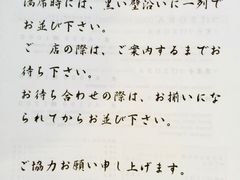 満席時には、黒い壁沿いに一列で
お並び下さい。
ご 店の際は、ご案内するまでお
待ち下さい。
お待ち合わせの際は、お揃いにな
られてからお並び下さい。
ご協力お願い申し上げます。